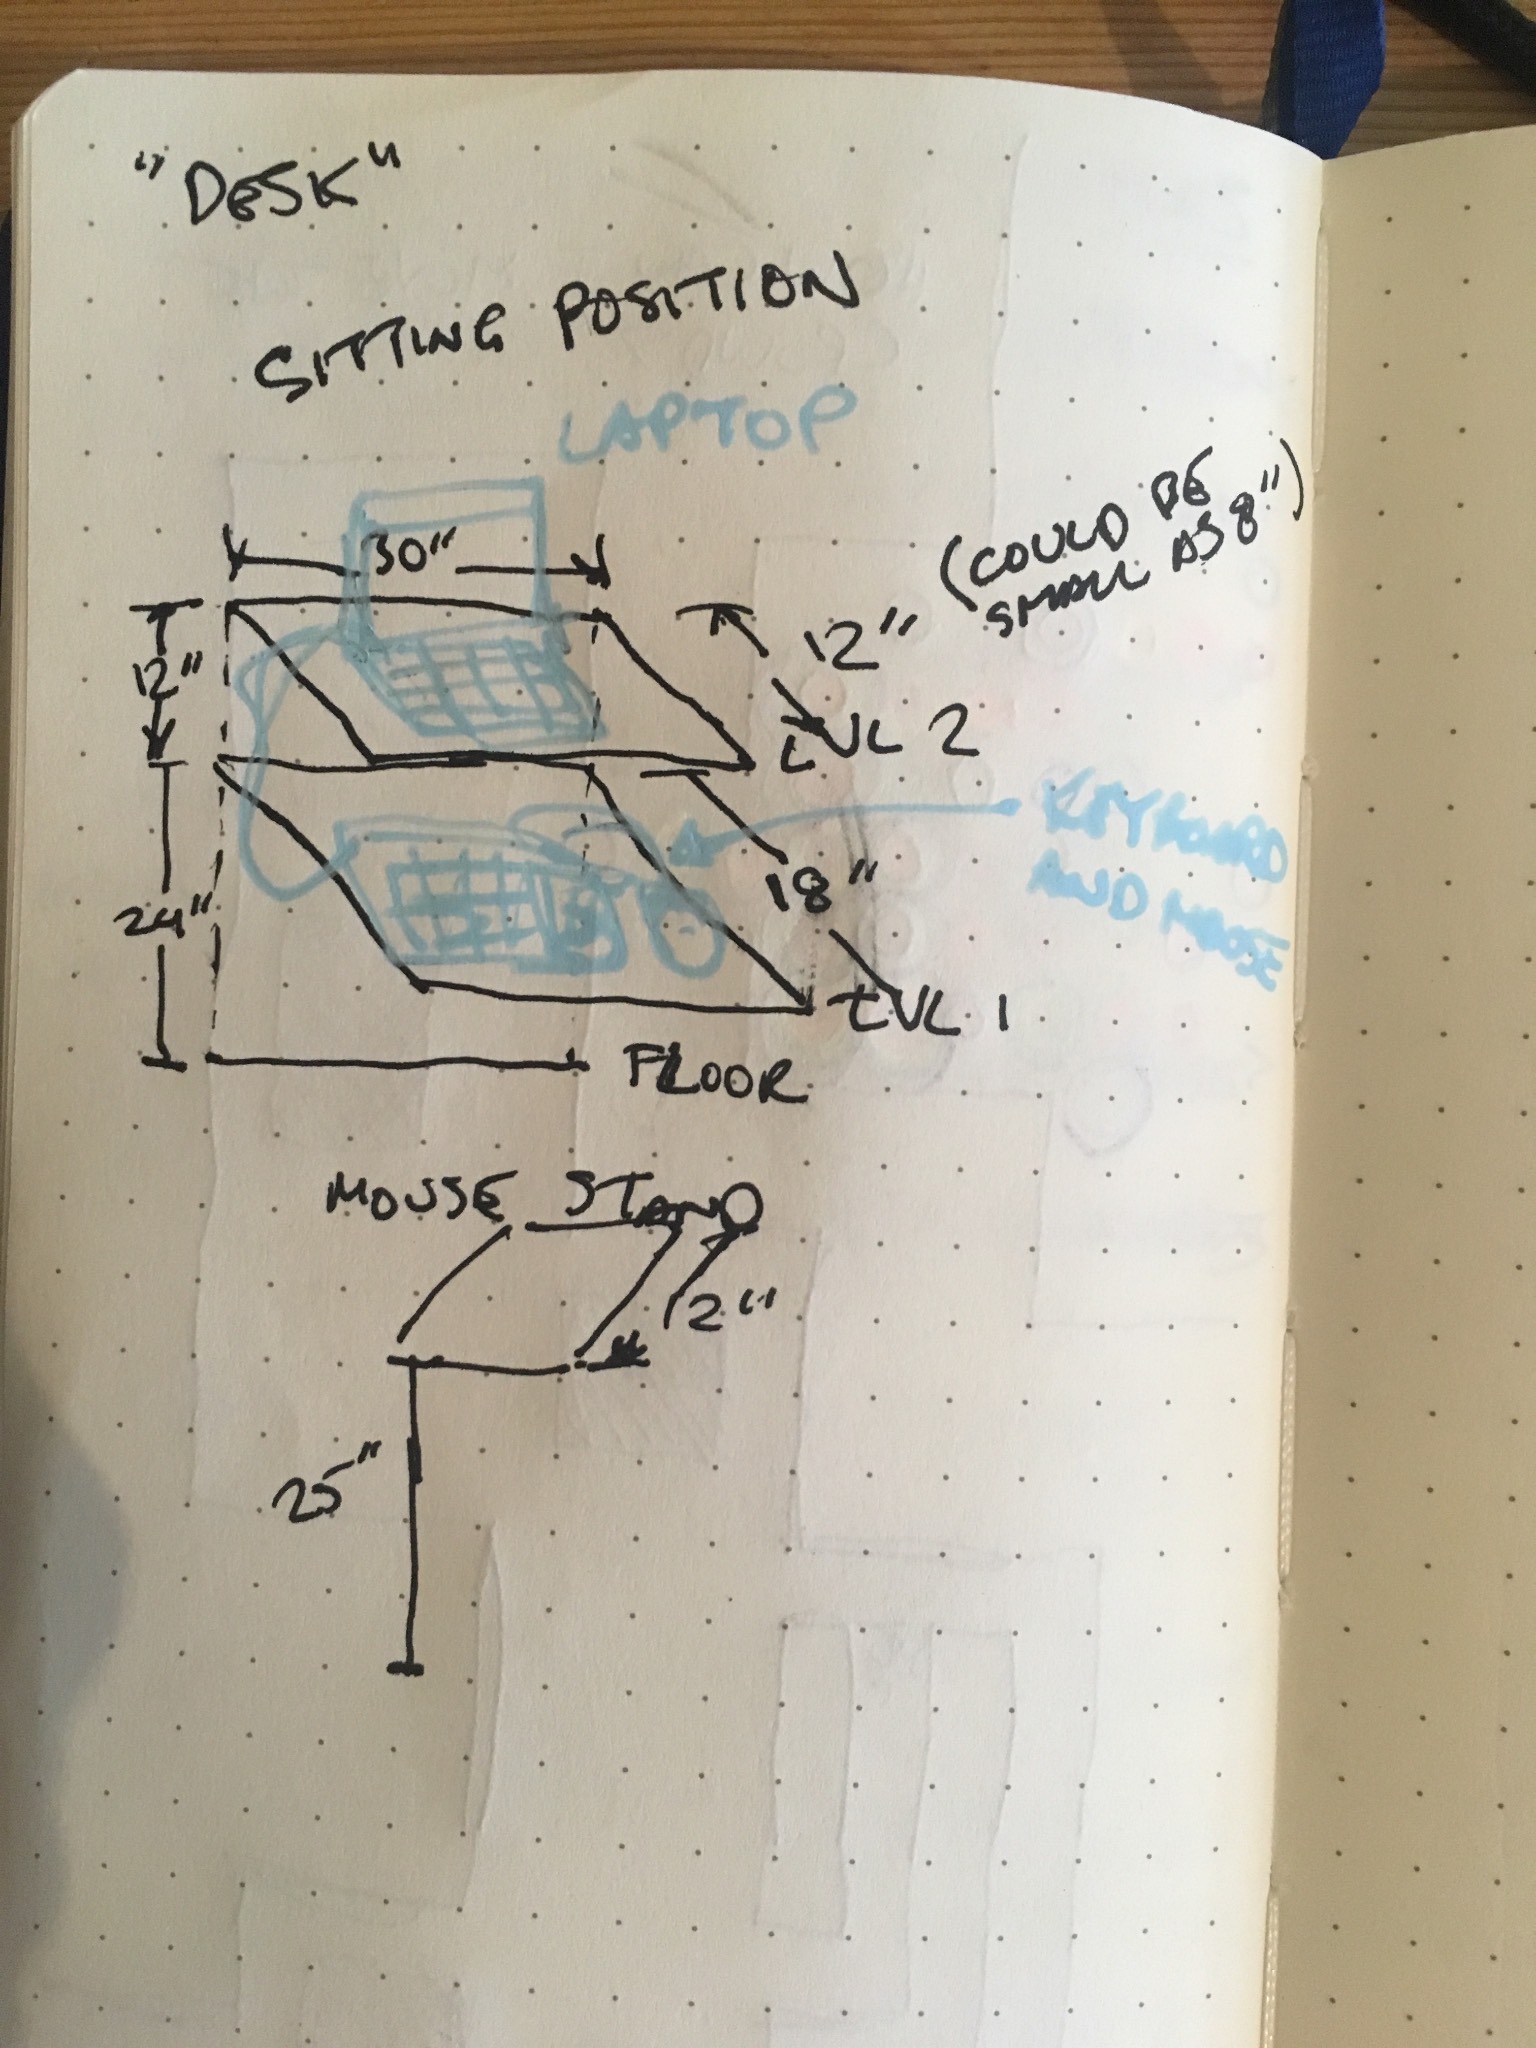 "DESK"
SITTING POSITION
LAPTOP
(COULD BE
SMALL AS 8")
30"
12"
12"
LVL 2
KEYBOARD
AND MOUSE
18"
24"
LVL 1
FLOOR
MOUSE STAND
12"
25"